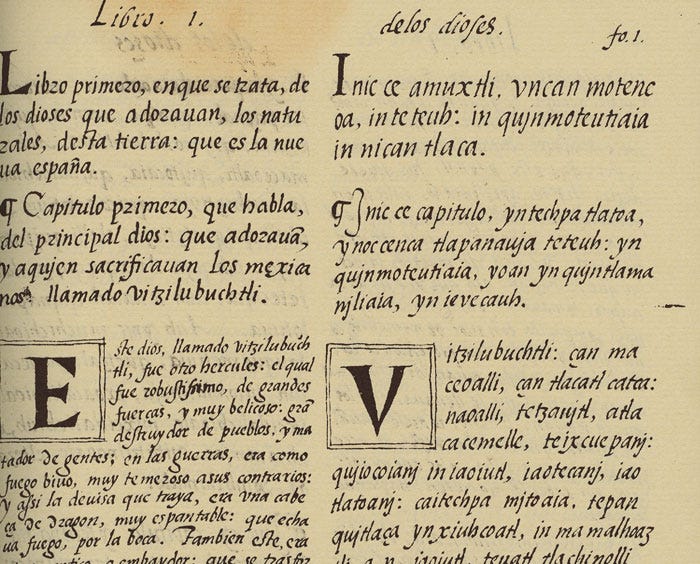 Libro. 1.
de los dioses.
fo. 1.
Libro primero, en que se trata, de
los dioses que adorauan, los natu
rales, desta tierra: que es la nue
ua españa.
¶ Capitulo primero, que habla,
del principal dios: que adorauã,
y aquien sacrificauan los mexica
nos llamado vitzilubuchtli.
Este dios, llamado vitzilubuch
tli, fue otro hercules: el qual
fue robustissimo, de grandes
fuerças, y muy belicoso: grã
destruydor de pueblos, y ma
tador de gentes; en las guerras, era como
fuego biuo, muy temeroso a sus contrarios:
y assi la deuisa que traya, era vna cabe
ça de dragon, muy espantable: que echa
ua fuego, por la boca. Tambien este, era
Inic ce amuxtli, vncan motenc
oa, in teteuh: in qujnmoteutiaia
in nican tlaca.
¶ Jnic ce capitulo, yntechpa tlatoa,
ynoccenca tlapanauja teteuh: yn
qujnmoteutiaia, yoan yn qujntlama
njliaia, yn ievecauh.
Vitzilubuchtli: çan ma
ceoalli, çan tlacatl catca:
naoalli, tetzaujtl, atla
cacemelle, teixcuepanj:
qujiocoianj in iaoiutl, iaotecanj, iao
tlatoanj: caitechpa mjtoaia, tepan
qujtlaça yn xiuhcoatl, in mamalhoaz
iaoiutl, teuatl tlachinolli